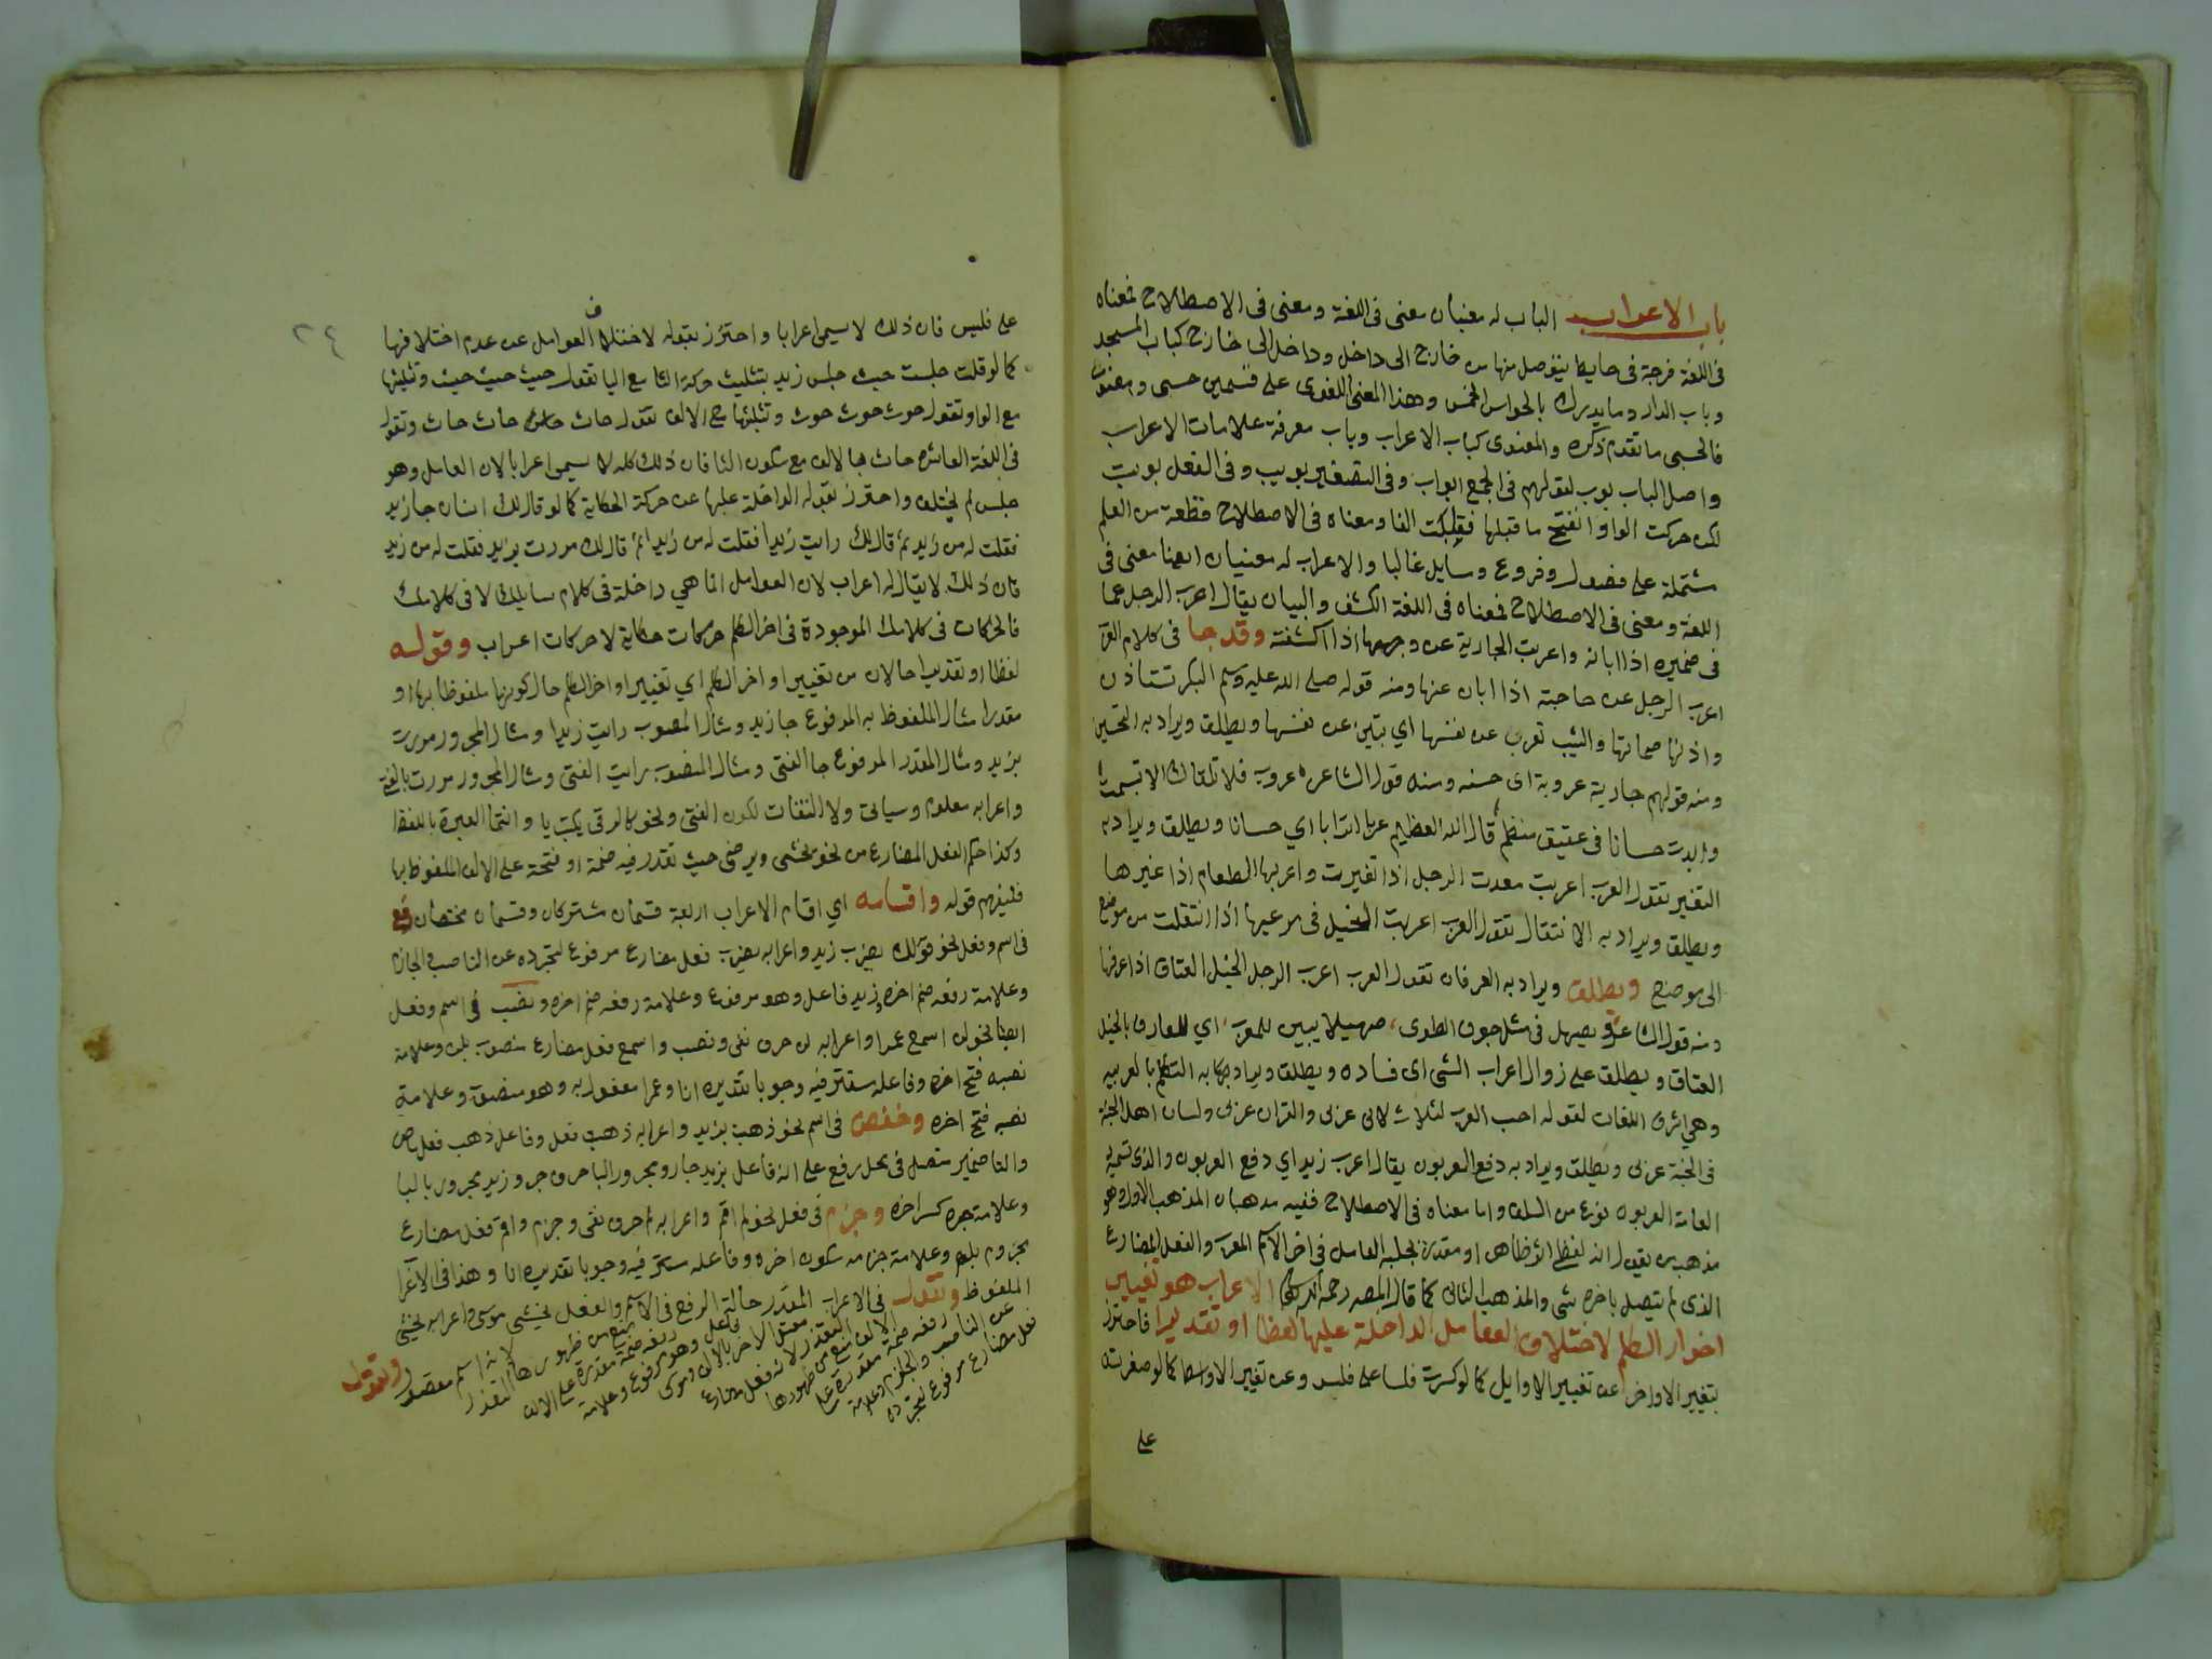 باب الاعراب الباب له معنيان معنى فى اللغة ومعنى فى الاصطلاح فمعناه
فى اللغة فرجة فى حايط يتوصل منها من خارج الى داخل وداخل الى خارج كباب المسجد
وباب الدار وما يدرك بالحواس الخمس وهذا المعنى اللغوى على قسمين حسى ومعنوى
فالحسى ما تقدم ذكره والمعنوى كباب الاعراب وباب معرفة علامات الاعراب
واصل الباب بوب لقولهم فى الجمع ابواب وفى التصغير بويب وفى الفعل بوبت
لكن حركت الواو انفتح ما قبلها فقلبت الفا ومعناه فى الاصطلاح قطعة من العلم
مشتملة على فصول وفروع ومسايل غالبا والاعراب له معنيان ايضا معنى فى
اللغة ومعنى فى الاصطلاح فمعناه فى اللغة الكشف والبيان يقال اعرب الرجل عما
فى ضميره اذا ابانه واعربت الجارية عن وجهها اذا اكشفته وقد جا فى كلام العرب
اعرب الرجل عن حاجته اذا ابان عنها ومنه قوله صلى الله عليه وسلم البكر تستاذن
واذنها صماتها والثيب تعرب عن نفسها اي تبين عن نفسها ويطلق ويراد به التحسين
ومنه قولهم جارية عروبة اى حسنه ومنه قول الشاعر عروب فلا تلقاك الا تبسمت
وابدت حسانا فى عقيق منظم قال الله العظيم عربا اترابا اي حسانا ويطلق ويراد به
التغير تقول العرب اعربت معدت الرجل اذا تغيرت واعربها الطعام اذا غيرها
ويطلق ويراد به الانتقال تقول العرب اعربت الخيل فى مرعيها اذا انتقلت من موضع
الى موضع ويطلق ويراد به العرفان تقول العرب اعرب الرجل الخيل العتاق اذا عرفها
ومنه قول الشاعر ويصهل فى مثل جوف الطوى صهيلا يبين للمعرب اي للعارف بالخيل
العتاق ويطلق على زوال اعراب الشى اى فساده ويطلق ويراد به التكلم بالعربيه
وهي اشرف اللغات لقوله احب العرب لثلاث لانى عربى والقران عربى ولسان اهل الجنة
فى الجنة عربى ويطلق ويراد به دفع العربون يقال اعرب زيد اي دفع العربون والذى تسميه
العامة العربون نوع من السلف واما معناه فى الاصطلاح ففيه مذهبان المذهب الاول وهو
مذهب من يقول انه لفظي اثر ظاهر او مقدر يجلبه العامل فى اخر الاسم المعرب والفعل المضارع
الذى لم يتصل باخره شى والمذهب الثانى كما قال المصنف رحمه الله الاعراب هو تغيير
اخوار الكلم لاختلاف العوامل الداخلة عليها لفظا او تقديرا فاحترز
بتغيير الاواخر عن تغيير الاوايل كما لو كسرت فلسا على فلس وعن تغيير الاواسط كما لو صغرته
على
على فليس فان ذلك لا يسمى اعرابا واحترز بقوله لاختلاف العوامل عن عدم اختلافها
كما لو قلت جلست حيث جلس زيد بتثليث حركة الثا مع اليا تقول حيث حيث حيث وتثليثها
مع الواو تقول حوث حوث حوث وتثليثها مع الالف تقول حاث حاث حاث وتقول
فى اللغة العاشره حاث بالالف مع سكون الثا فان ذلك كله لا يسمى اعرابا لان العامل وهو
جلس لم يختلف واحترز بقوله الداخلة عليها عن حركة الحكاية كما لو قال لك انسان جا زيد
فقلت له من زيد ثم قال لك رايت زيدا فقلت له من زيدا ثم قال لك مررت بزيد فقلت له من زيد
فان ذلك لا يقال له اعراب لان العوامل انما هي داخلة فى كلام سايلك لا فى كلامك
فالحركات فى كلامك الموجودة فى اخر الكلم حركات حكاية لا حركات اعراب وقوله
لفظا او تقديرا حالان من تغيير اواخر الكلم اي تغيير اواخر الكلم حال كونها ملفوظا بها او
مقدرا مثال الملفوظ به المرفوع جا زيد ومثال المنصوب رايت زيدا ومثال المجرور مررت
بزيد ومثال المقدر المرفوع جا الفتى ومثال المنصوب رايت الفتى ومثال المجرور مررت بالفتى
واعرابه معلوم وسياتى ولا التفات لكون الفتى ونحوه كالرقى يكتب يا وانما العبرة باللفظ
وكذا حكم الفعل المضارع من نحو يخشى ويرضى حيث تقدر فيه ضمة او فتحة على الالف الملفوظ بها
فليفهم قوله واقسامه اي اقسام الاعراب اربعة قسمان مشتركان وقسمان مختصان رفع
فى اسم وفعل نحو قولك يضرب زيد واعرابه يضرب فعل مضارع مرفوع لتجرده عن الناصب والجازم
وعلامة رفعه ضم اخره وزيد فاعل وهو مرفوع وعلامة رفعه ضم اخره ونصب فى اسم وفعل
ايضا نحو لن اسمع عمرا واعرابه لن حرف نفى ونصب واسمع فعل مضارع منصوب بلن وعلامة
نصبه فتح اخره وفاعله مستتر فيه وجوبا تقديره انا وعمرا مفعول به وهو منصوب وعلامة
نصبه فتح اخره وخفض فى اسم نحو ذهبت بزيد واعرابه ذهبت فعل وفاعل ذهب فعل ماض
والتا ضمير متصل فى محل رفع على انه فاعل بزيد جار ومجرور البا حرف جر وزيد مجرور بالبا
وعلامة جره كسر اخره وجزم فى فعل نحو لم اقم واعرابه لم حرف نفى وجزم واقم فعل مضارع
مجزوم بلم وعلامة جزمه سكون اخره وفاعله مستتر فيه وجوبا تقديره انا وهذا فى الاعراب
الملفوظ وتقول فى الاعراب المقدر حالة الرفع فى الاسم والفعل يخشى موسى واعرابه يخشى
فعل مضارع مرفوع لتجرده
عن الناصب والجازم وعلامة
رفعه ضمة مقدرة على
الالف منع من ظهورها
التعذر لانه فعل مضارع
معتل الاخر بالالف وموسى
فاعل وهو مرفوع وعلامة
رفعه ضمة مقدرة على الالف
منع من ظهورها التعذر
لانه اسم مقصور وتقول